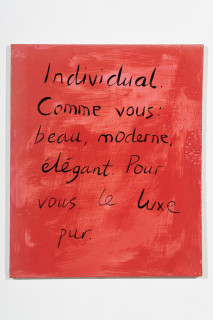 Individual.
Comme vous:
beau, moderne,
élégant. Pour
vous le luxe
pur.